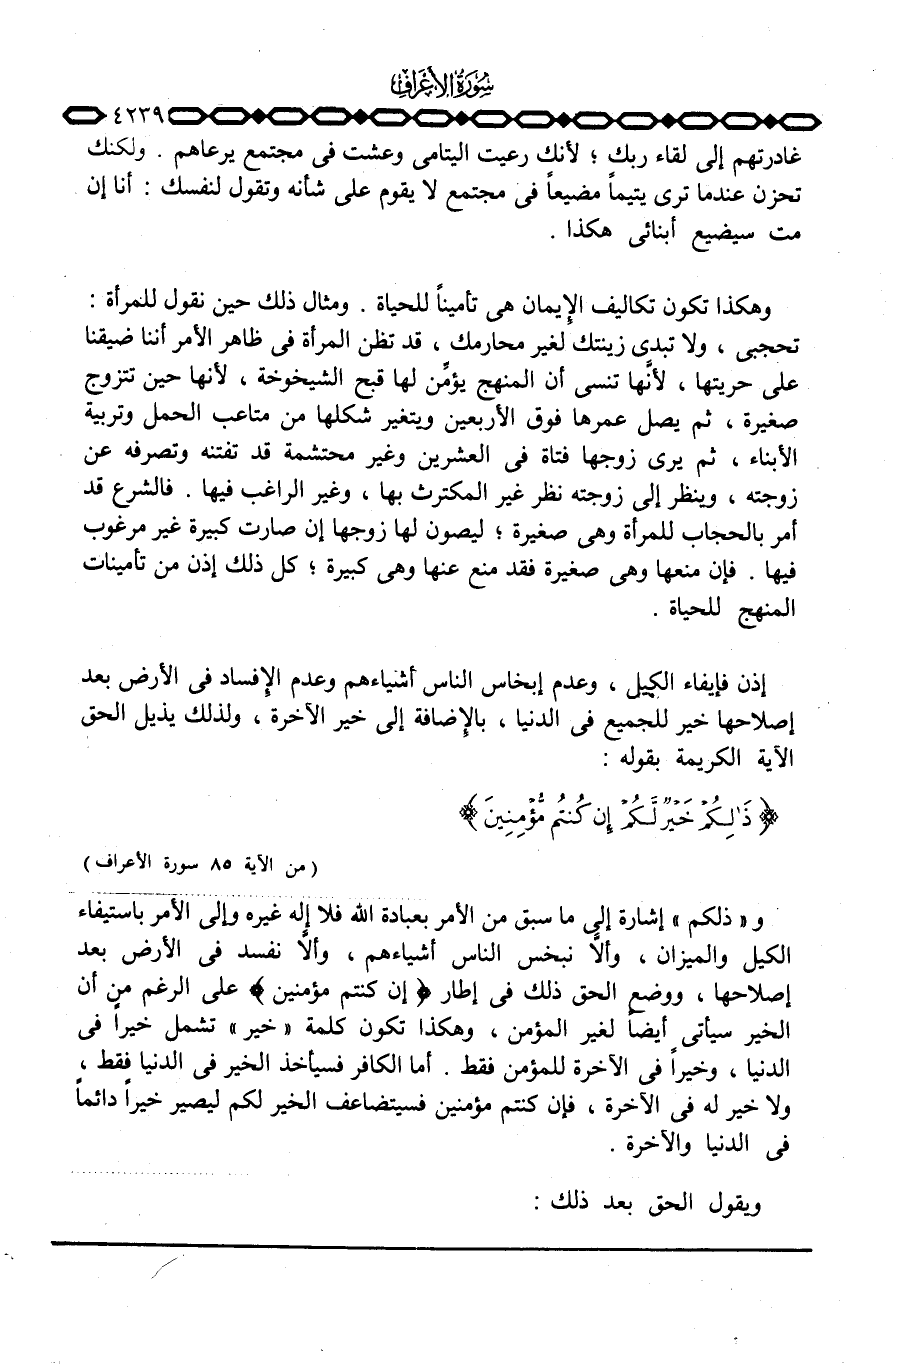 سورة الأعراف
٤٢٣٩
غادرتهم إلى لقاء ربك ؛ لأنك رعيت اليتامى وعشت فى مجتمع يرعاهم . ولكنك
تحزن عندما ترى يتيماً مضيعاً فى مجتمع لا يقوم على شأنه وتقول لنفسك : أنا إن
مت سيضيع أبنائى هكذا .
وهكذا تكون تكاليف الإيمان هى تأميناً للحياة . ومثال ذلك حين نقول للمرأة :
تحجبى ، ولا تبدى زينتك لغير محارمك ، قد تظن المرأة فى ظاهر الأمر أننا ضيقنا
على حريتها ، لأنَّها تنسى أن المنهج يؤمِّن لها قبح الشيخوخة ، لأنها حين تتزوج
صغيرة ، ثم يصل عمرها فوق الأربعين ويتغير شكلها من متاعب الحمل وتربية
الأبناء ، ثم يرى زوجها فتاة فى العشرين وغير محتشمة قد تفتنه وتصرفه عن
زوجته ، وينظر إلى زوجته نظر غير المكترث بها ، وغير الراغب فيها . فالشرع قد
أمر بالحجاب للمرأة وهى صغيرة ؛ ليصون لها زوجها إن صارت كبيرة غير مرغوب
فيها . فإن منعها وهى صغيرة فقد منع عنها وهى كبيرة ؛ كل ذلك إذن من تأمينات
المنهج للحياة .
إذن فإيفاء الكيل ، وعدم إبخاس الناس أشياءهم وعدم الإفساد فى الأرض بعد
إصلاحها خير للجميع فى الدنيا ، بالإضافة إلى خير الآخرة ، ولذلك يذيل الحق
الآية الكريمة بقوله :
﴿ ذَٰلِكُمْ خَيْرٌ لَّكُمْ إِن كُنتُم مُّؤْمِنِينَ ﴾
( من الآية ٨٥ سورة الأعراف )
و « ذلكم » إشارة إلى ما سبق من الأمر بعبادة الله فلا إله غيره وإلى الأمر باستيفاء
الكيل والميزان ، وألاَّ نبخس الناس أشياءهم ، وألاَّ نفسد فى الأرض بعد
إصلاحها ، ووضع الحق ذلك فى إطار ﴿ إن كنتم مؤمنين ﴾ على الرغم من أن
الخير سيأتى أيضاً لغير المؤمن ، وهكذا تكون كلمة « خير » تشمل خيراً فى
الدنيا ، وخيراً فى الآخرة للمؤمن فقط . أما الكافر فسيأخذ الخير فى الدنيا فقط ،
ولا خير له فى الآخرة ، فإن كنتم مؤمنين فسيتضاعف الخير لكم ليصير خيراً دائماً
فى الدنيا والآخرة .
ويقول الحق بعد ذلك :